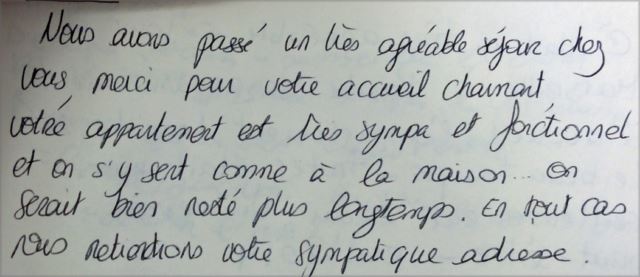 Nous avons passé un très agréable séjour chez
vous merci pour votre accueil charmant
votre appartement est très sympa et fonctionnel
et on s'y sent comme à la maison... on
serait bien resté plus longtemps. En tout cas
nous retiendrons votre sympatique adresse.